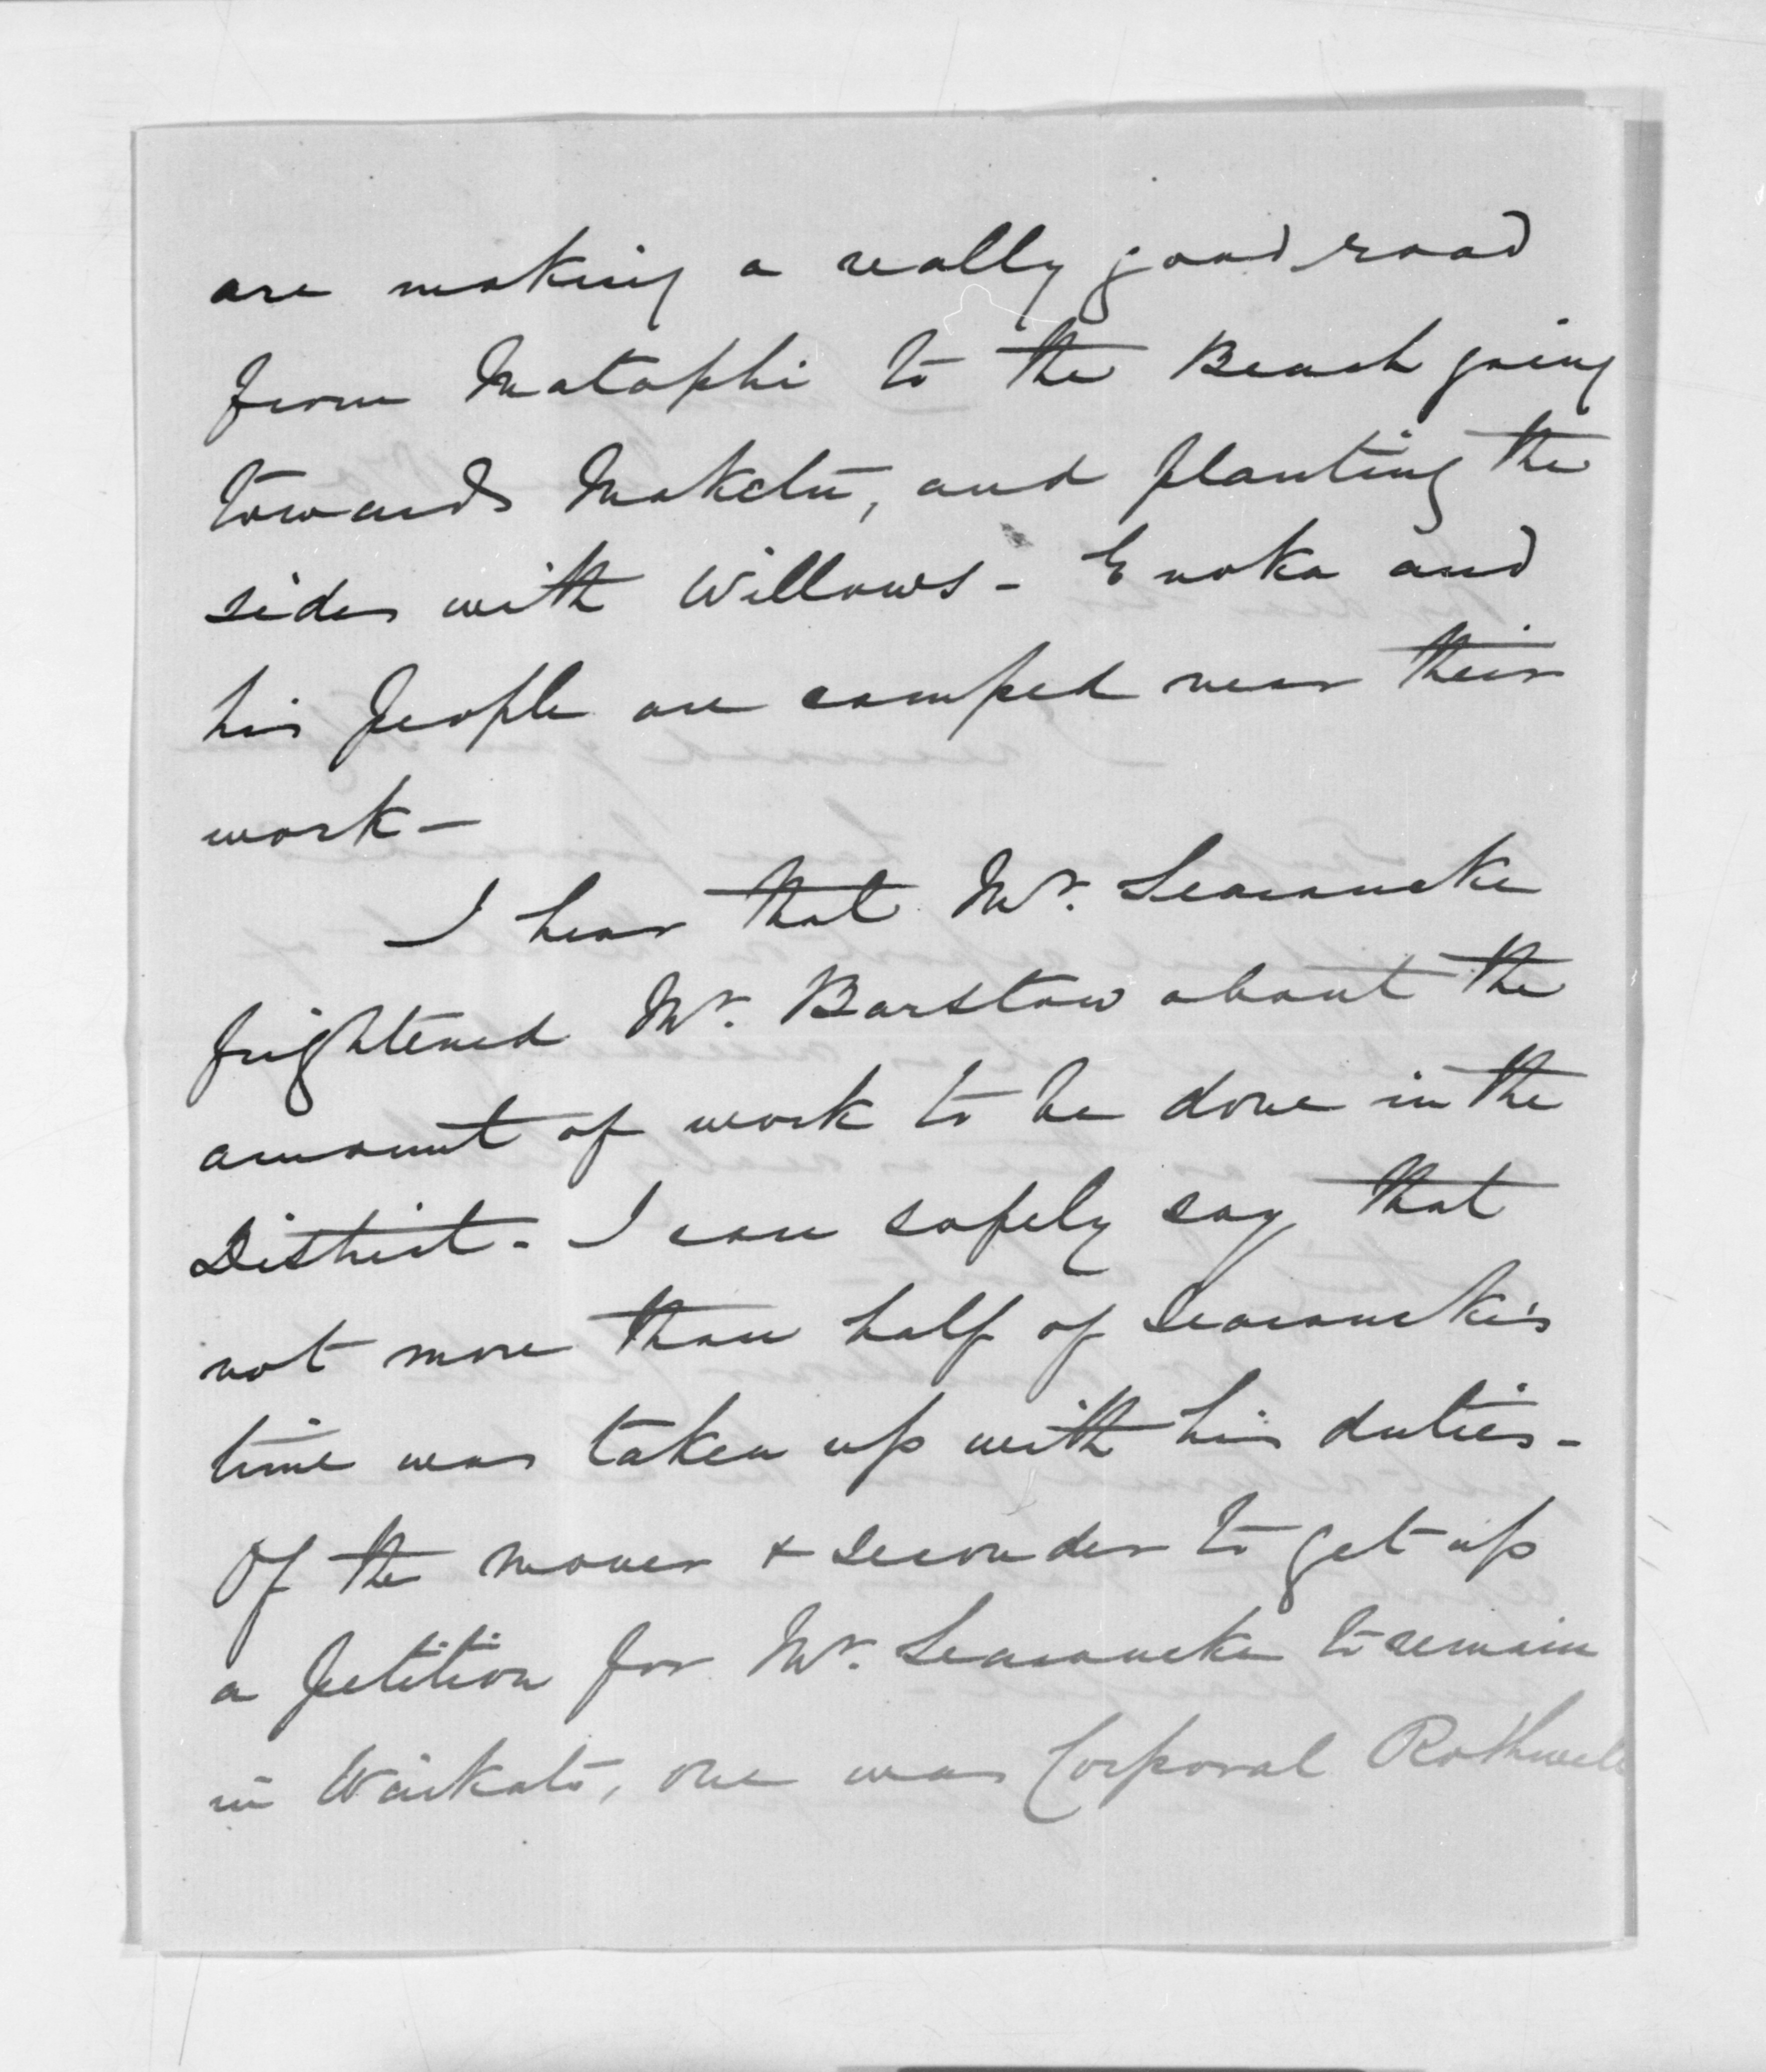 are making a really good road
from Mataphi to the Beach going
towards Maketu, and planting the
sides with Willows - Enoka and
his People are camped near their
work -
I hear that Mr. Searancke
frightened Mr. Barstow about the
amount of work to be done in the
District. I can safely say that
not more than half of Searancke's
time was taken up with his duties -
Of the mover & seconder to get up
a Petition for Mr. Searancke to remain
in Waikato, one was Corporal Rothwell